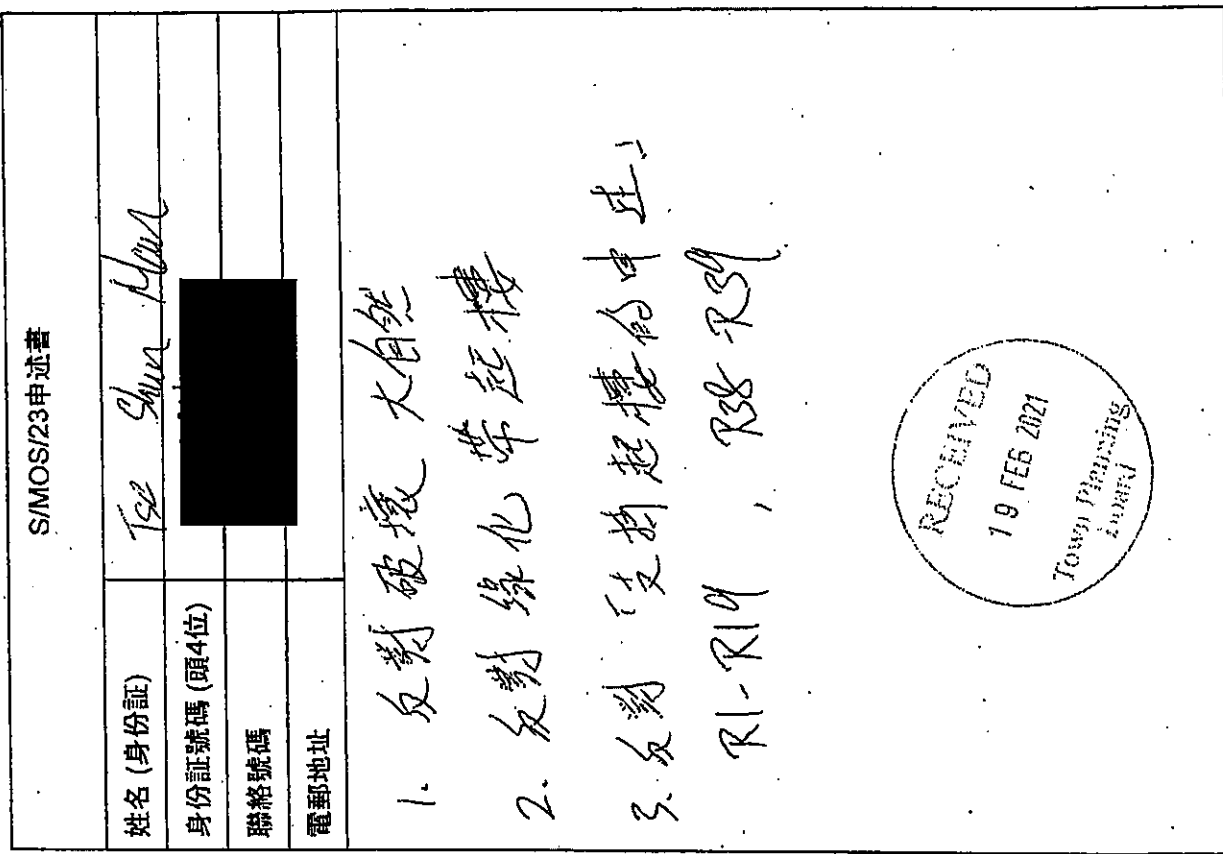 S/MOS/23申述書
姓名 (身份証) Tse Shun Man
身份証號碼 (頭4位)
聯絡號碼
電郵地址
1. 反對破壞大自然
2. 反對綠化帶起樓
3. 反對「支持起樓的申述」
R1-R19, R38-R39
RECEIVED
19 FEB 2021
Town Planning
Board